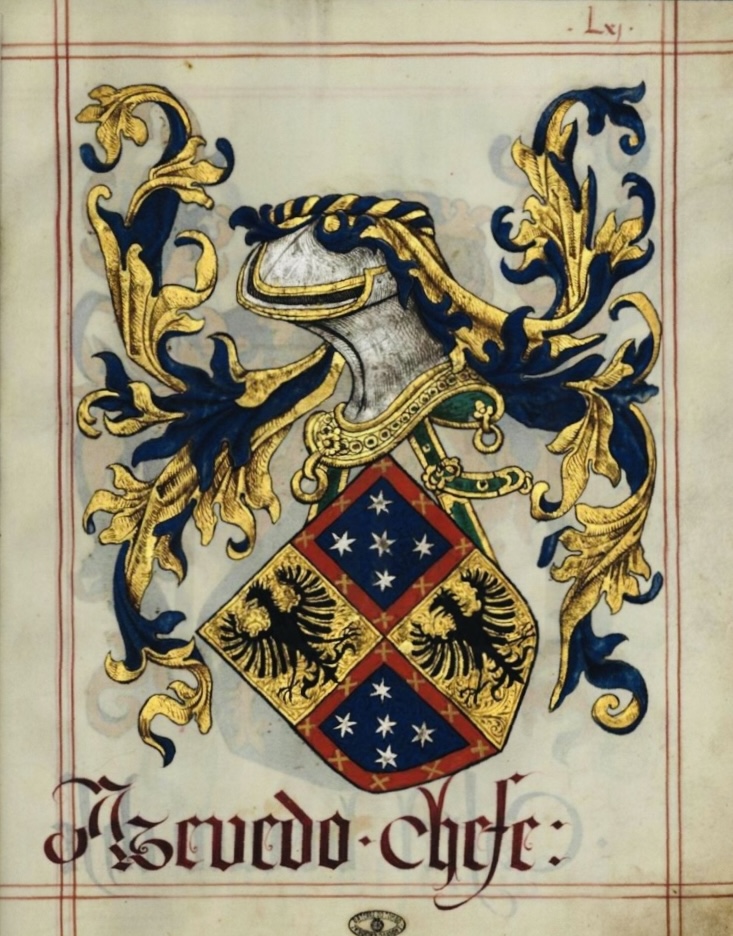 . Lxj .
Azevedo · chefe: